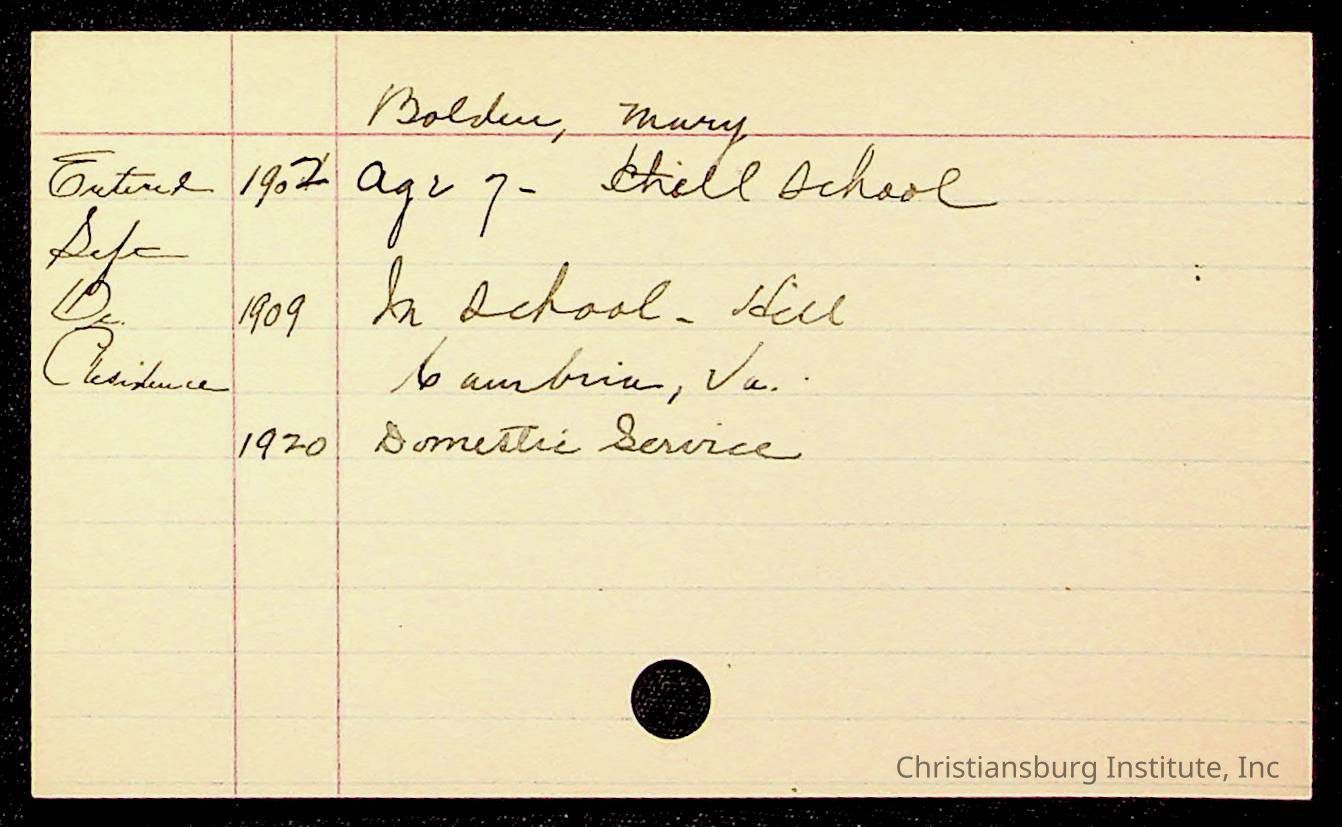 Bolden, Mary
Entered 1902 Age 7 - Hill School
Left
Do. 1909 In School - Hill
Residence Cambria, Va.
1920 Domestic Service
Christiansburg Institute, Inc